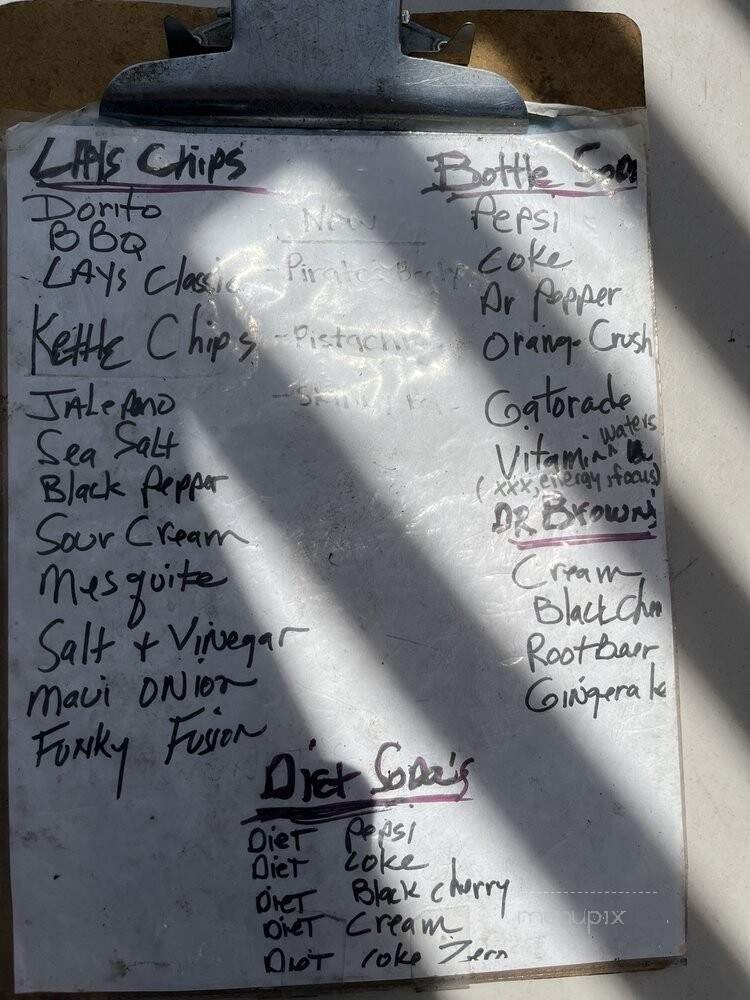 LAYS Chips
Dorito
BBQ
LAYS Classic
Kettle Chips
JALePANO
Sea Salt
Black Pepper
Sour Cream
Mesquite
Salt + Vinegar
Maui ONION
Funky Fusion
New
- Pirate's Booty
- Pistachio
Bottle Soda
Pepsi
Coke
Dr Pepper
Orange Crush
Gatorade
Vitamin waters
(xxx, energy, focus)
DR BROWN'S
Cream
Black Cherr
Root Beer
Gingerale
Diet Soda's
DIET Pepsi
DIET Coke
DIET Black cherry
DIET Cream
DIET Coke Zero
menupix